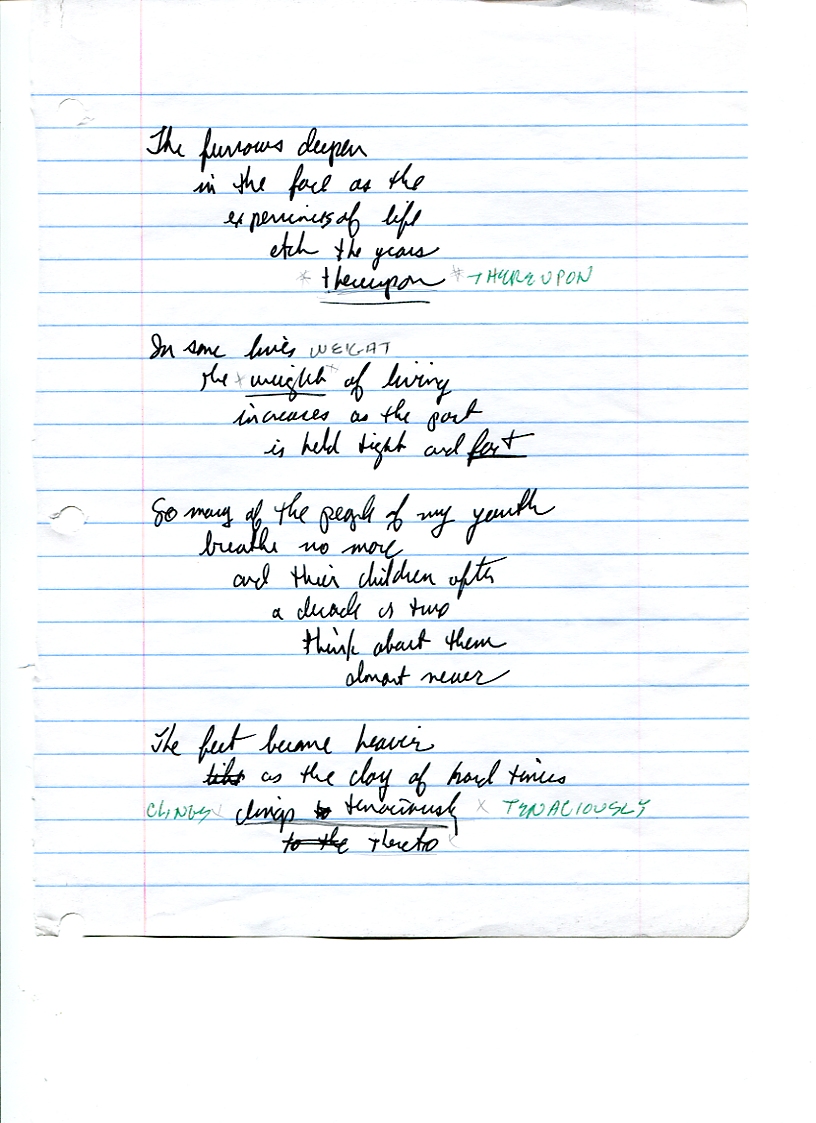 The furrows deepen
in the face as the
experiences of life
etch the years
* thereupon * THEREUPON
In some lives WEIGHT
the x weight x of living
increases as the past
is held tight and fast
So many of the people of my youth
breathe no more
and their children after
a decade or two
think about them
almost never
The feet become heavier
like as the clay of hard times
CLINGS x clings to tenaciously x TENACIOUSLY
to the thereto x